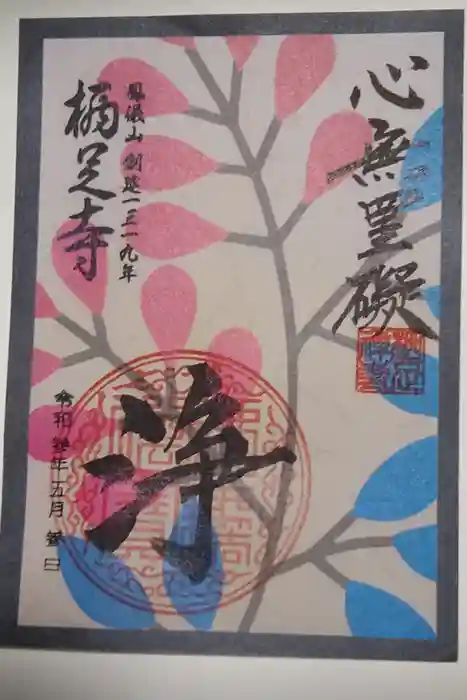 心無罣礙
浄
鳳儀山 創建一三一九年
橘足寺
令和 参年 五月 参日